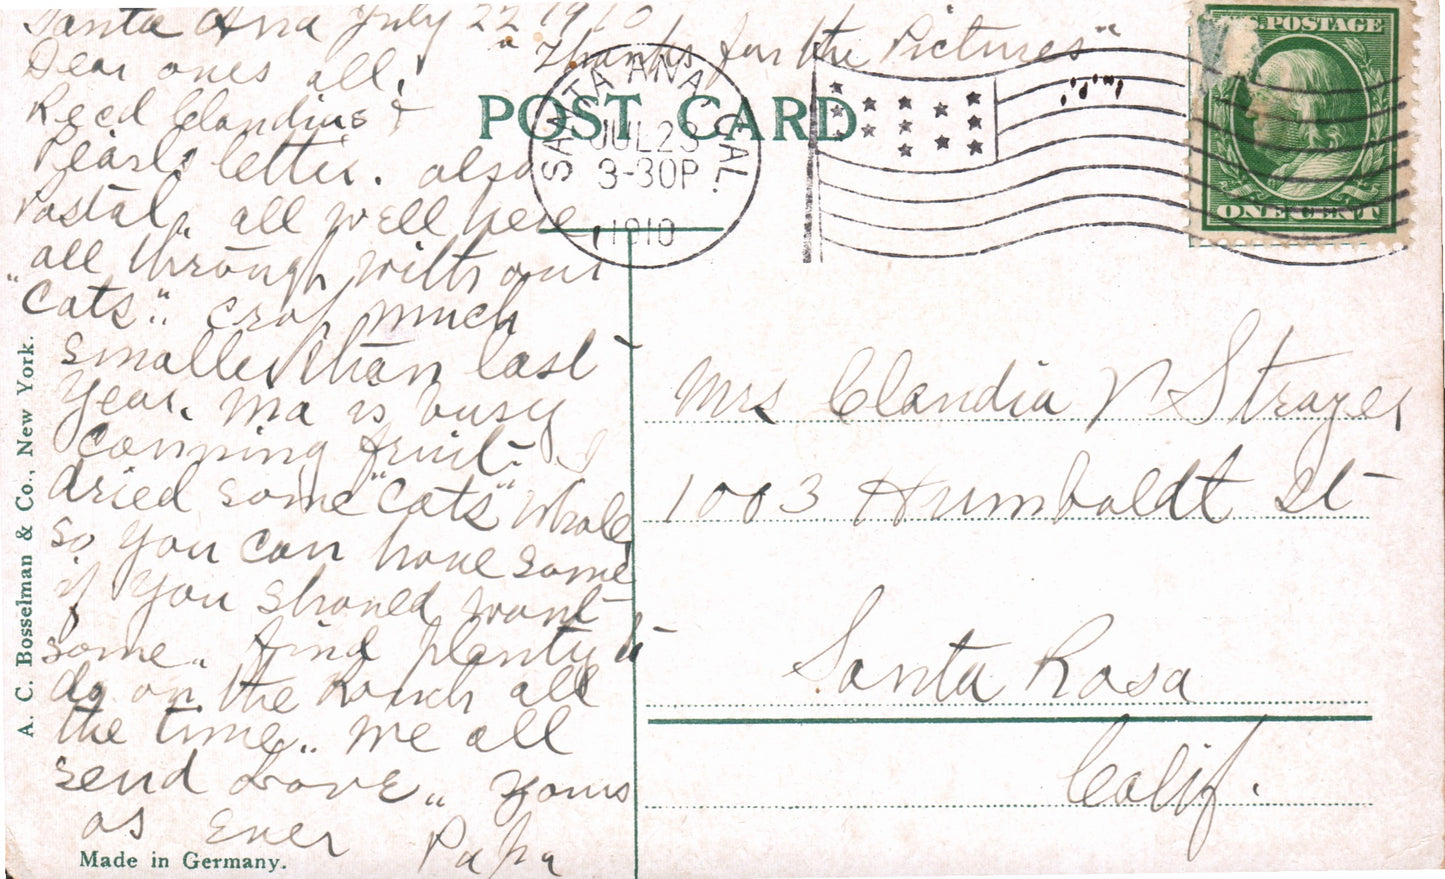 Santa Ana July 22 1910
"Thanks for the Pictures"
Dear ones all,
Recd Claudius &
Pearls letter. also
Postal. all well here
all through with our
"Cats". Crop much
smaller than last
Year. Ma is busy
Canning fruit. I
dried some "Cats" whole
so you can have some
if you should want
some. find plenty to
do on the Ranch all
the time. We all
send Love. Yours
as Ever Papa
POST CARD
SANTA ANA, CAL.
JUL 23
3-30P
1910
U.S. POSTAGE
ONE CENT
Mrs Claudia V Strayer
1003 Humboldt St
Santa Rosa
Calif.
A. C. Bosselman & Co., New York.
Made in Germany.